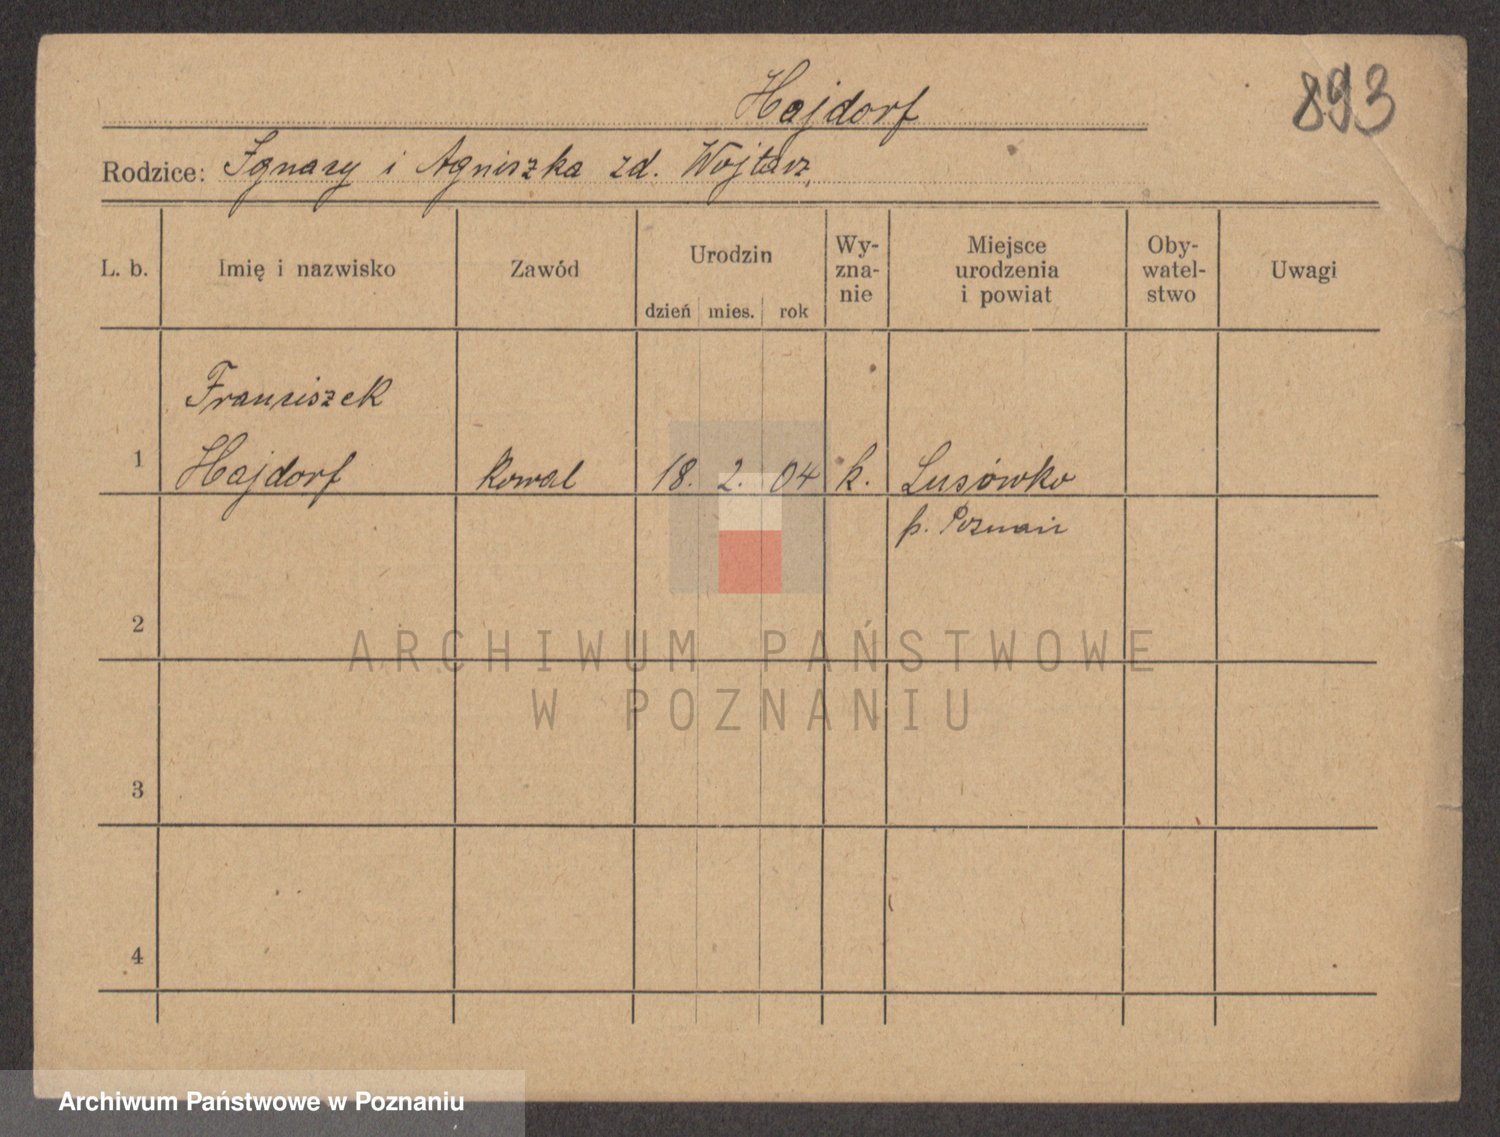 Hajdorf
893
Rodzice: Ignacy i Agniszka zd. Wojtarz
L. b.
Imię i nazwisko
Zawód
Urodzin
dzień mies. rok
Wy-
zna-
nie
Miejsce
urodzenia
i powiat
Oby-
watel-
stwo
Uwagi
Franciszek
1 Hajdorf kowal 18. 2. 04 k. Lusówko
p. Poznań
2
ARCHIWUM PAŃSTWOWE
W POZNANIU
3
4
Archiwum Państwowe w Poznaniu